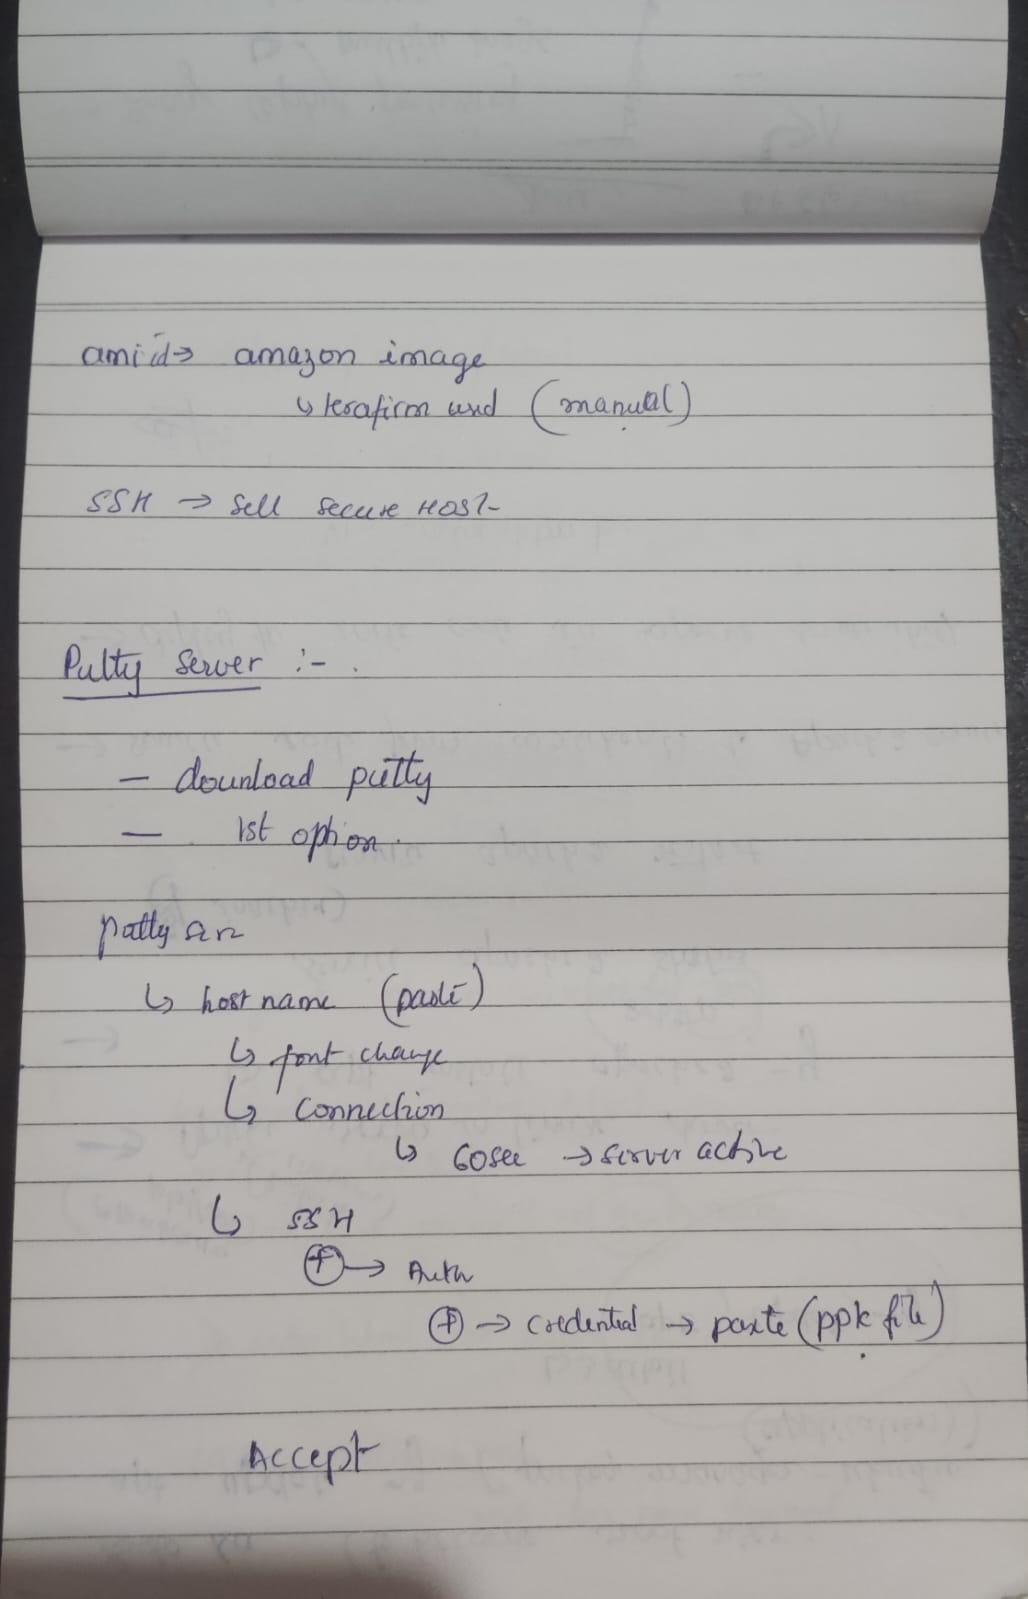 ami id → amazon image
↳ terafirm used (manual)
SSH → Sell secure HOST-
Putty Server :-
— download putty
— 1st option.
putty
↳ host name (paste)
↳ font change
↳ connection
↳ 60sec → server active
↳ SSH
⊕ → Auth
⊕ → credential → paste (ppk file)
Accept